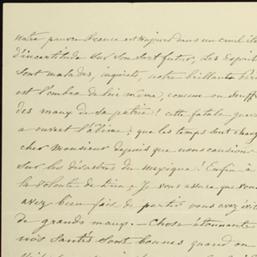 notre pauvre France est toujours dans un cruel état
d'incertitude sur son sort futur, les esprits
sont malades, inquiets, notre brillante
est l'ombre de lui même, comme on souffre
des maux de sa patrie! cette fatale guerre
a ouvert l'abîme; que les temps sont changés
cher Monsieur depuis que nous causions
sur les désastres du Mexique! Enfin à
la volonté de Dieu. Je vous assure que vous
avez bien fait de partir vous avez évité
de grands maux. Chose étonnante
nos santés sont bonnes quand on